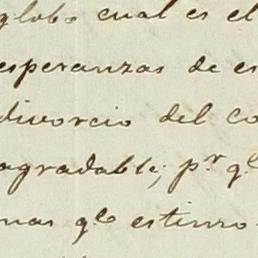 globo cual es el
esperanzas de es
divorcio del co
agradable; pr. ql
mas qlo estimo